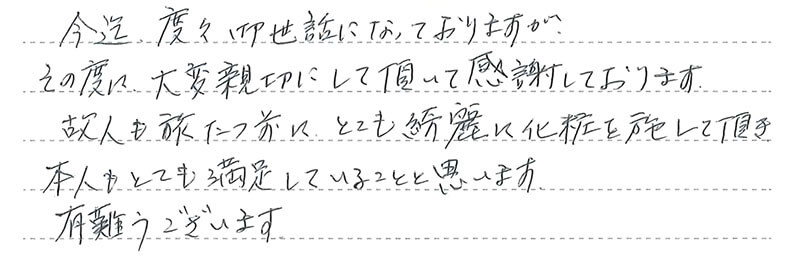 今迄、度々御世話になっておりますが、
その度に、大変親切にして頂いて感謝しております。
故人も旅たつ前に、とても綺麗に化粧を施して頂き
本人もとても満足していることと思います。
有難うございます。